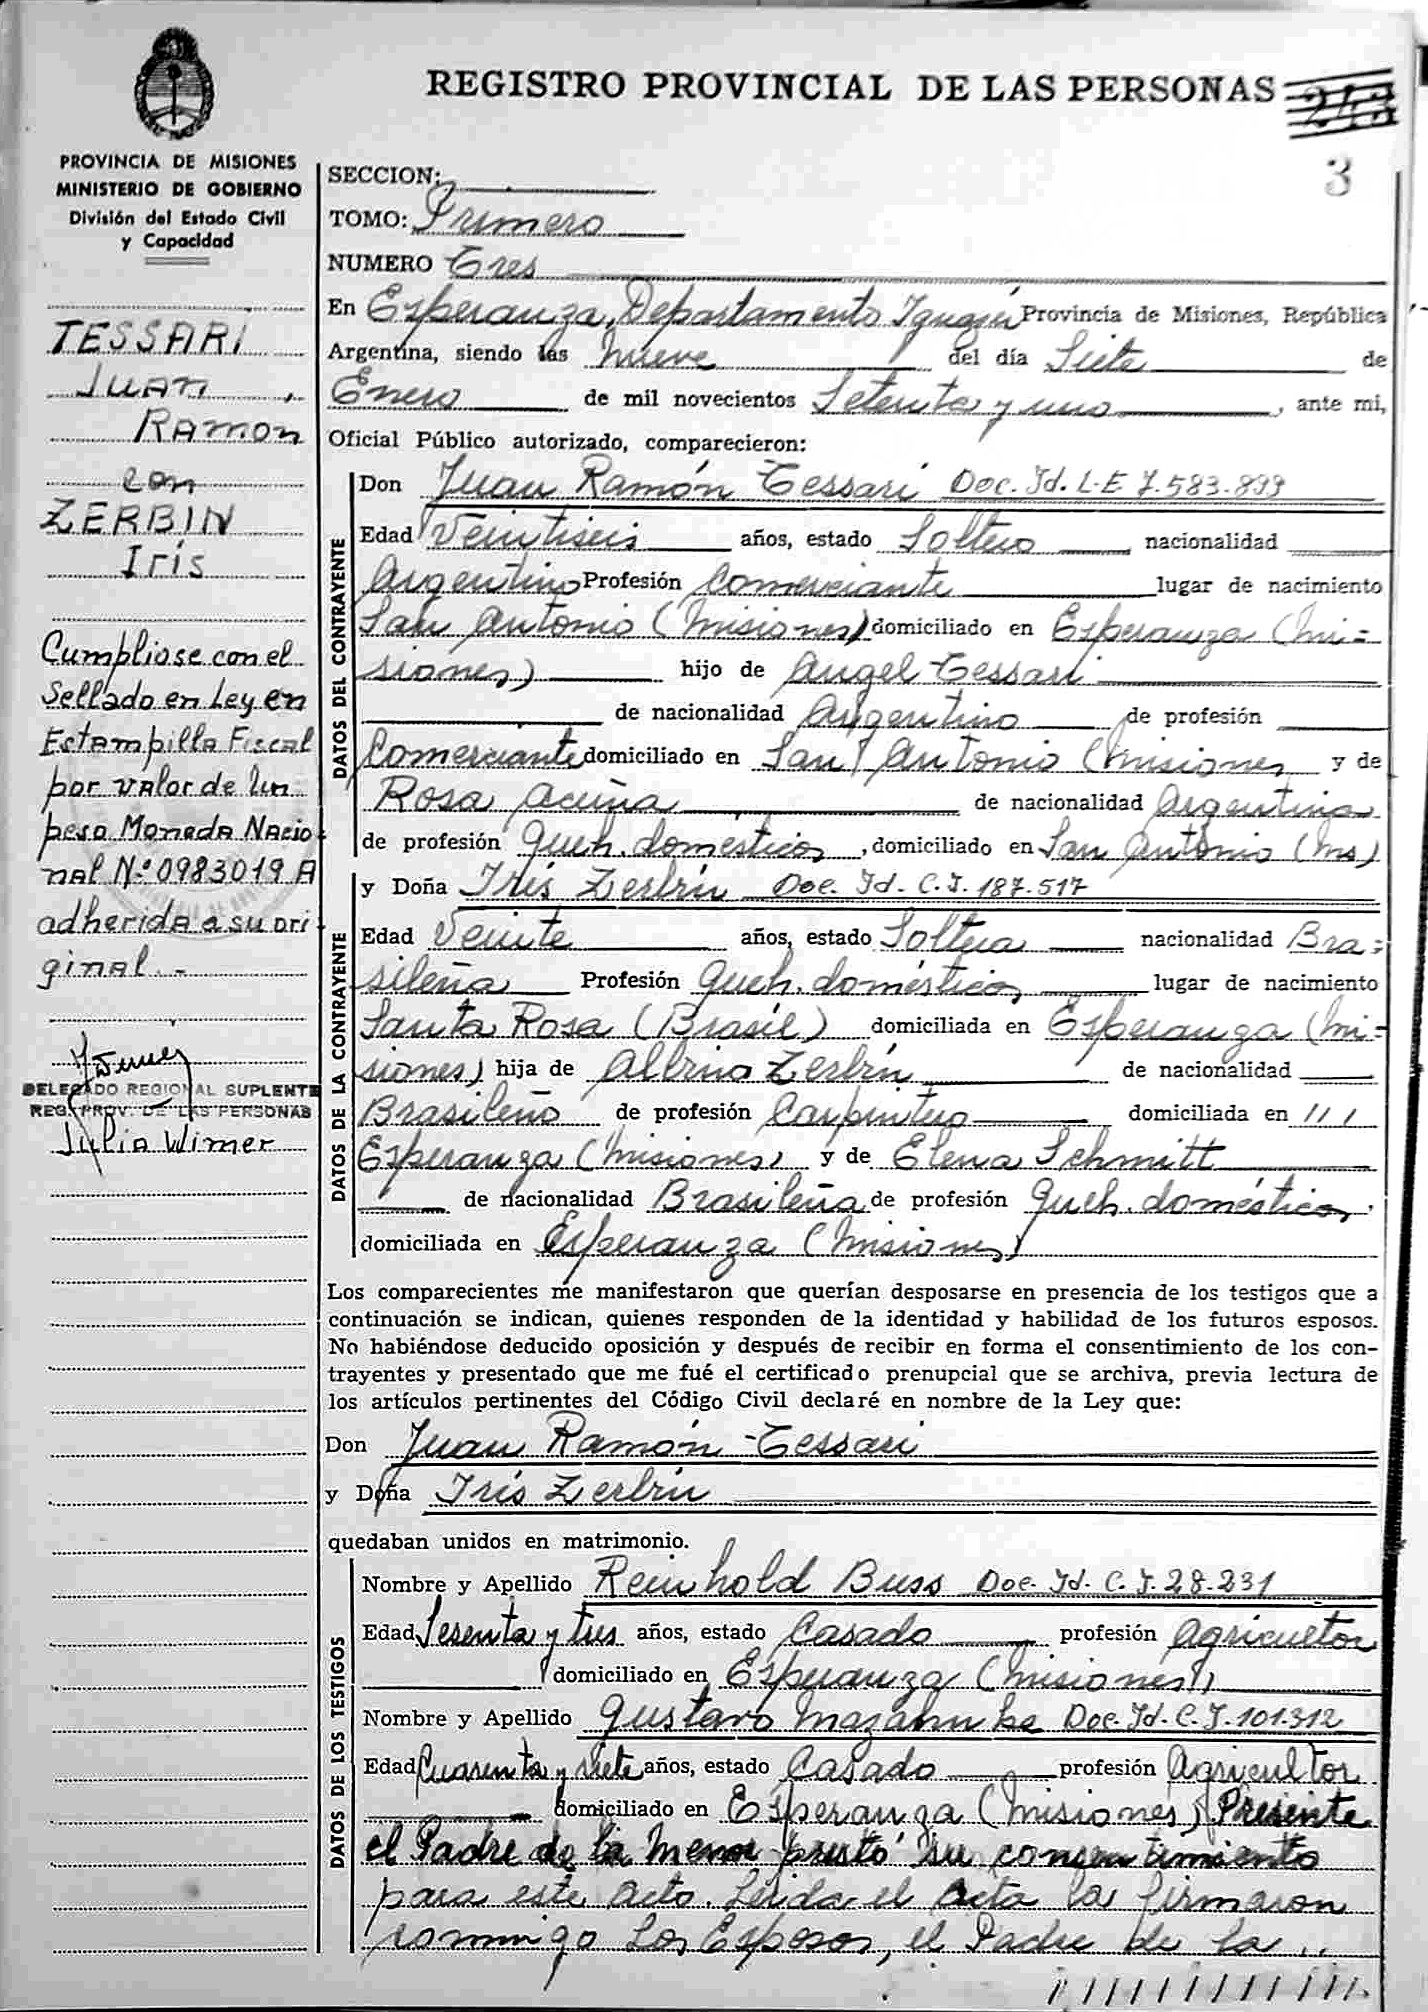 REGISTRO PROVINCIAL DE LAS PERSONAS
3
PROVINCIA DE MISIONES
MINISTERIO DE GOBIERNO
División del Estado Civil
y Capacidad
TESSARI
JUAN,
RAMON
con
ZERBIN
Irís
Cumpliose con el
Sellado en Ley en
Estampilla Fiscal
por valor de Un
peso Moneda Nacio
nal Nº 0983019 A
adherida a su ori
ginal.-
DELEGADO REGIONAL SUPLENTE
REG. PROV. DE LAS PERSONAS
Julia Wimer
SECCION:
TOMO: Primero
NUMERO Tres
En Esperanza, Departamento Iguazú Provincia de Misiones, República
Argentina, siendo las nueve del día Siete de
Enero de mil novecientos Setenta y uno, ante mi,
Oficial Público autorizado, comparecieron:
DATOS DEL CONTRAYENTE
Don Juan Ramón Tessari Doc. Id. L.E 7.583.899
Edad Veintiseis años, estado Soltero nacionalidad
Argentino Profesión Comerciante lugar de nacimiento
San Antonio (Misiones) domiciliado en Esperanza (Mi=
siones) hijo de Angel Tessari
de nacionalidad Argentino de profesión
Comerciante domiciliado en San Antonio (Misiones y de
Rosa Acuña de nacionalidad Argentina
de profesión Queh. domésticos, domiciliado en San Antonio (Ms)
DATOS DE LA CONTRAYENTE
y Doña Irís Zerbin Doc. Id. C.I. 187.517
Edad Veinte años, estado Soltera nacionalidad Bra=
sileña Profesión Queh. domésticos lugar de nacimiento
Santa Rosa (Brasíl) domiciliada en Esperanza (Mi=
siones) hija de Albino Zerbin de nacionalidad
Brasileño de profesión Carpintero domiciliada en ///
Esperanza (Misiones) y de Elena Schmitt
de nacionalidad Brasileña de profesión Queh. domésticos.
domiciliada en Esperanza (Misiones)
Los comparecientes me manifestaron que querían desposarse en presencia de los testigos que a
continuación se indican, quienes responden de la identidad y habilidad de los futuros esposos.
No habiéndose deducido oposición y después de recibir en forma el consentimiento de los con-
trayentes y presentado que me fué el certificado prenupcial que se archiva, previa lectura de
los artículos pertinentes del Código Civil declaré en nombre de la Ley que:
Don Juan Ramón Tessari
y Doña Irís Zerbin
quedaban unidos en matrimonio.
DATOS DE LOS TESTIGOS
Nombre y Apellido Reinhold Buss Doc. Id. C.I. 28.231
Edad Sesenta y tres años, estado Casado profesión Agricultor
domiciliado en Esperanza (Misiones)
Nombre y Apellido Gustavo Doc. Id. C.I. 101.312
Edad Cuarenta y siete años, estado Casado profesión Agricultor
domiciliado en Esperanza (Misiones) Presente
el Padre de la menor prestó su consentimiento
para este acto. Leida el acta la firmaron
conmigo Los Esposos, el Padre de la ,,
////////////.